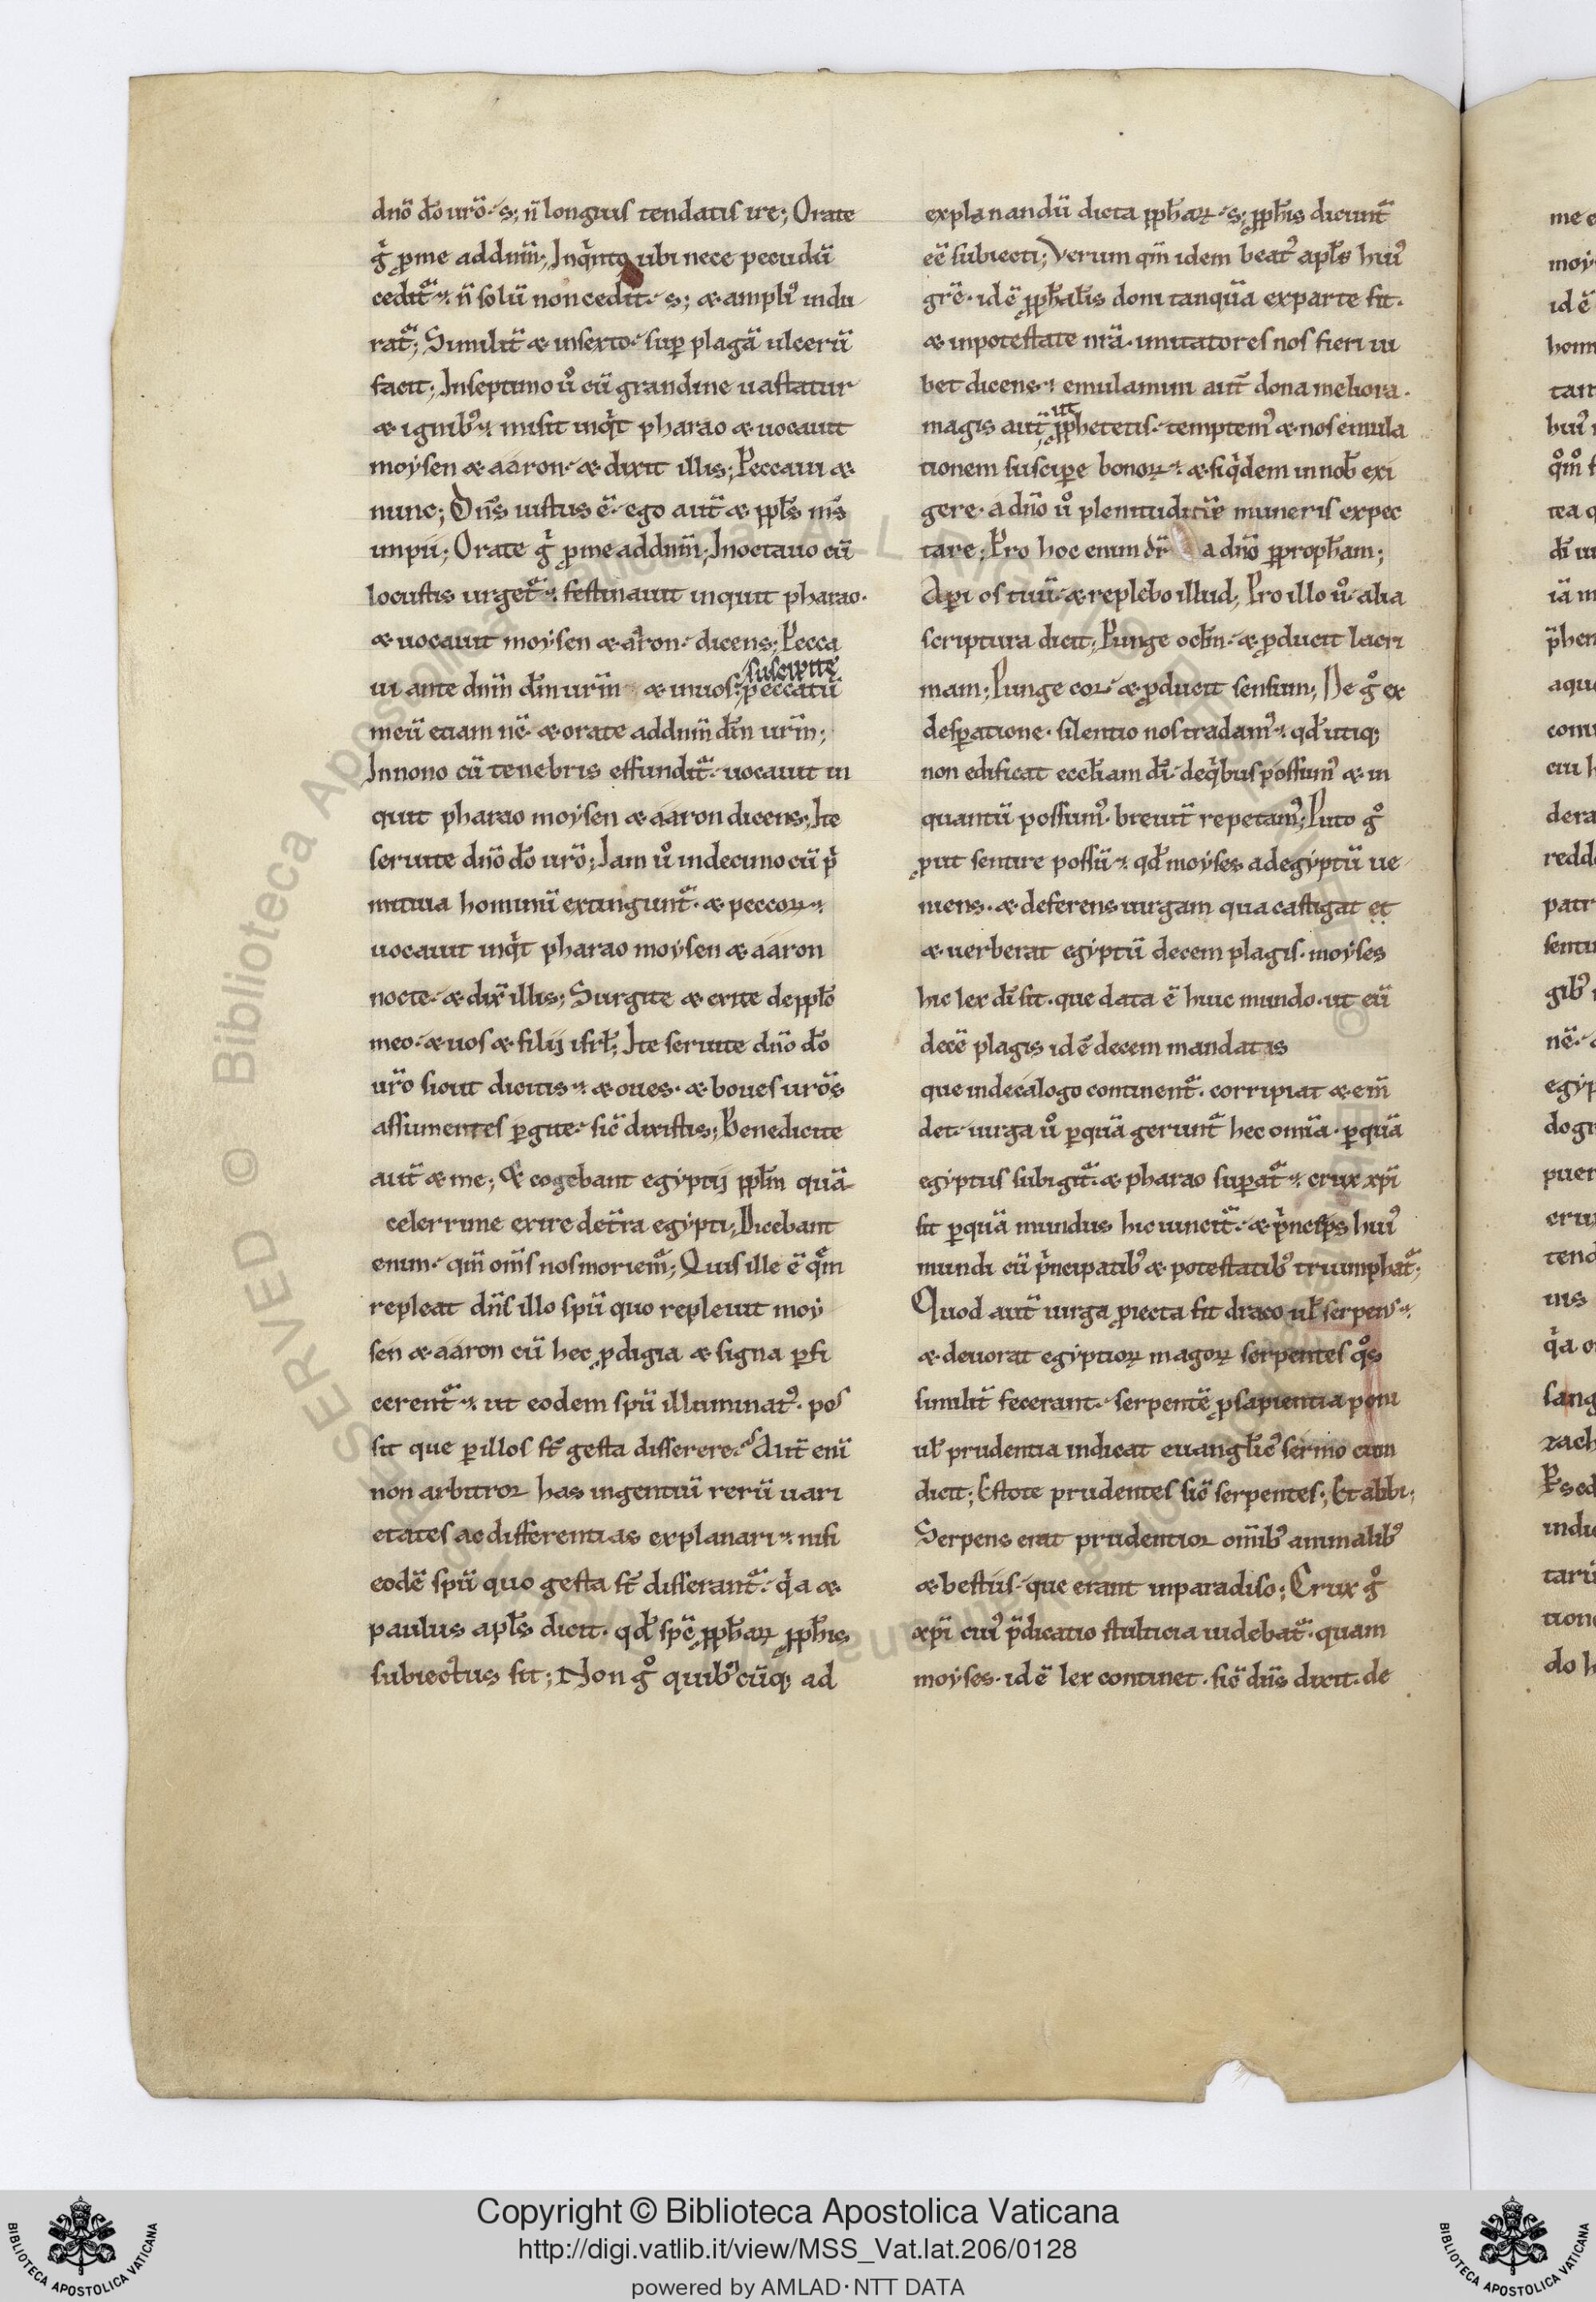 dno̅ do̅ uro̅. s; n̅ longius tendatis ire; Orate
g̊ ꝓme addnm̅; Inqͥnto ubi nece pecudu̅
cedit᷑. n̅ solu̅ non cedit. s; & ampliꝰ indu
rat᷑; Similit̅ & insexto. suꝑ plaga̅ ulceru̅
facit; Inseptimo ů cu̅ grandine uastatur
& ignibꝰ. misit inqͥt pharao & uocauit
moysen & aaron. & dixit illis; Peccaui &
nunc; Dn̅s iustus e̅. ego aut̅ & ppl̅s m̅s
impii; Orate g̊ ꝓme addnm̅; Inoctauo cu̅
locustis urget᷑. festinauit inquit pharao.
& uocauit moysen & ar̅on. dicens; Pecca
suscipite
ui ante dnm̅ dm̅ urm̅ & inuos; peccatu̅
meu̅ etiam nc̅. & orate addnm̅ dm̅ urm̅;
Innono cu̅ tenebris effundit᷑. uocauit in
quit pharao moysen & aaron dicens; Ite
seruite dno̅ do̅ uro̅; Iam ů indecimo cu̅ pͥ
mitiua hominu̅ extingunt᷑. & peccoꝝ.
uocauit inqͥt pharao moysen & aaron
nocte. & dix̅ illis; Surgite & exite depplo̅
meo. & uos & filij isrl̅; Ite seruite dno̅ do̅
uro̅ sicut dicitis. & oues. & boues uro̅s
assumentes ꝑgite. sic̅ dixistis; Benedicite
aut̅ & me; & cogebant egyptij pplm̅ qua̅
celerrime exire det̅ra egypti; Dicebant
enim. qm̅ om̅s nos moriem᷑; Quis ille e̅ q̊m
repleat dn̅s illo spu̅ quo repleuit moy
sen & aaron cu̅ hec ꝓdigia & signa ꝑfi
cerent᷑. ut eodem spu̅ illuminatꝰ. pos
sit que ꝑillos st̅ gesta disserere. Aut̅ eni̅
non arbitror has ingentiu̅ reru̅ uari
etates ac differentias explanari. nisi
eode̅ spu̅ quo gesta st̅ disserant᷑. qͥa &
paulus apl̅s dicit. qd̅ spc̅ ꝓph̅aꝝ ꝓph̅is
subiectus sit; Non g̊ quibꝰcu̅q; ad
explanandu̅ dicta ꝓph̅aꝝ. s; ꝓph̅is dicunt᷑
ee̅ subiecti; Verum qm̅ idem beatꝰ apl̅s huiꝰ
gre̅. id e̅ ꝓph̅al̅is doni tanqua̅ exparte sit.
& inpotestate nr̅a. imitatores nos fieri iu
bet dicens. emulamini aut̅ dona meliora.
ut
magis aut̅ ꝓphetetis. temptemꝰ & nos emula
tionem susciꝑe bonoꝝ. & siqͥdem in nob̅ exi
gere. a dno̅ ů plenitudine̅ muneris expec
tare; Pro hoc enim dr̅ a dno̅ ꝓproph̅am;
Aꝑi os tuu̅. & replebo illud; Pro illo ů. alia
scriptura dicit; Punge oclm̅. & ꝓducit lacri
mam; Punge cor. & ꝓducit sensum; Ne g̊ ex
desꝑatione. silentio nos tradamꝰ. qd̅ utiq;
non edificat eccl̅iam di̅. deqͥbus possumꝰ & in
quantu̅ possumꝰ. breuit̅ repetamꝰ; Puto g̊
ꝓut sentire possu̅. qd̅ moyses adegyptu̅ ue
niens. & deferens uirgam qua castigat et
& uerberat egyptu̅ decem plagis. moyses
hic lex di̅ sit. que data e̅ huic mundo. ut eu̅
dece̅ plagis id e̅ decem mandatis
que indecalogo continent᷑. corripiat & em̅
det. uirga ů ꝑqua̅ gerunt᷑ hec om̅a. ꝑqua̅
egyptus subigit᷑. & pharao suꝑat᷑. crux xp̅i
sit ꝑqua̅ mundus hic uincit᷑. & pͥnceps huiꝰ
mundi cu̅ pͥncipatibꝰ & potestatibꝰ triumphat᷑;
Quod aut̅ uirga ꝓiecta fit draco ul̅ serpens.
& deuorat egyptioꝝ magoꝝ serpentes q̊s
similit̅ fecerant. serpente̅ ꝓsapientia poni
ul̅ prudentia indicat euangl̅icꝰ sermo cum
dicit; Estote prudentes sic̅ serpentes; Et alibi;
Serpens erat prudentior om̅ibꝰ animalibꝰ
& bestiis. que erant inparadiso; Crux g̊
xp̅i cuiꝰ p̅dicatio stulticia uidebat᷑. quam
moyses. id e̅ lex continet. sic̅ dn̅s dixit. de
Copyright © Biblioteca Apostolica Vaticana
http://digi.vatlib.it/view/MSS_Vat.lat.206/0128
powered by AMLAD·NTT DATA
BIBLIOTECA APOSTOLICA VATICANA
BIBLIOTECA APOSTOLICA VATICANA